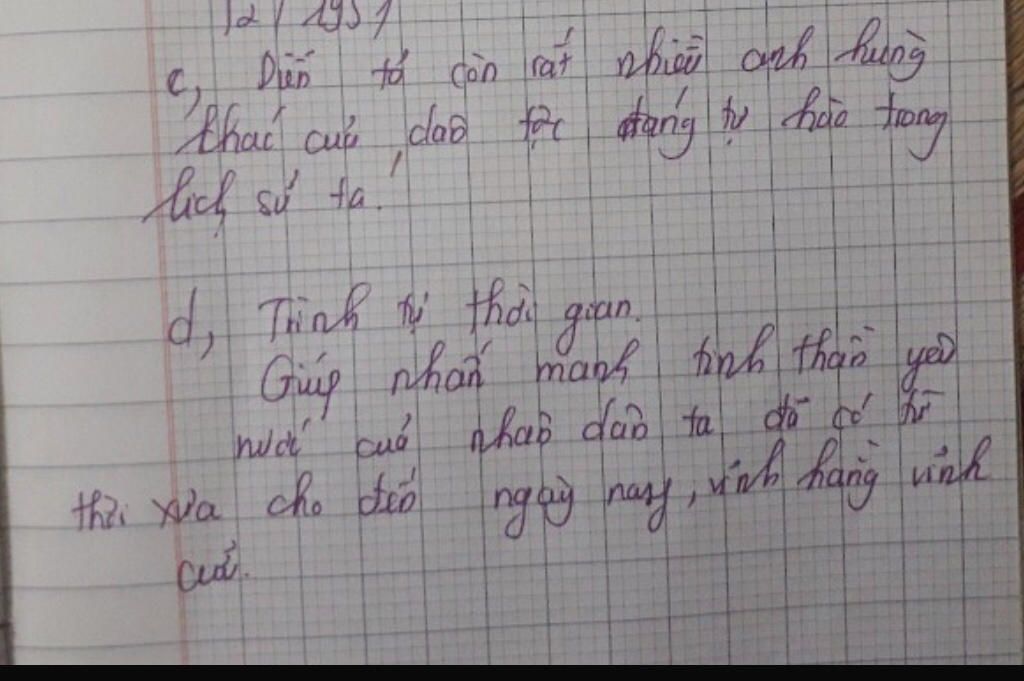 12/1951
c, Diễn tả còn rất nhiều anh hùng
khác của dân tộc đáng tự hào trong
lịch sử ta.
d, Trình tự thời gian.
Giúp nhấn mạnh tinh thần yêu
nước của nhân dân ta đã có từ
thời xưa cho đến ngày nay, vĩnh hằng vĩnh
cửu.